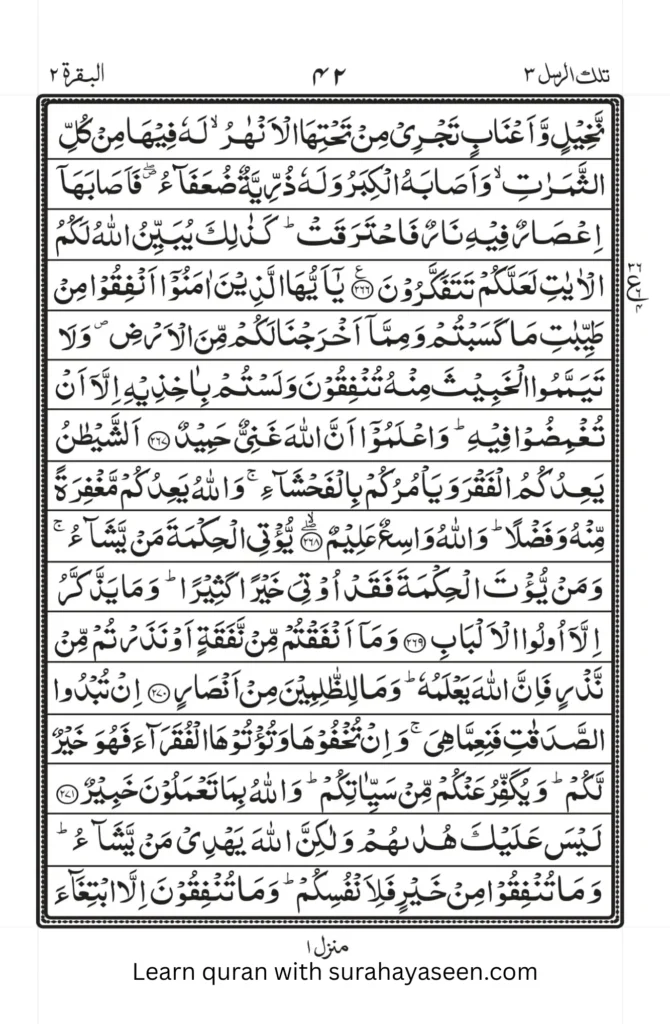 تلك الرسل ٣
٤٢
البقرة ٢
نَّخِيْلٍ وَّاَعْنَابٍ تَجْرِىْ مِنْ تَحْتِهَا الْاَنْهٰرُ ۙ لَهٗ فِيْهَا مِنْ كُلِّ
الثَّمَرٰتِ ۙ وَاَصَابَهُ الْكِبَرُ وَلَهٗ ذُرِّيَّةٌ ضُعَفَآءُ ۖۚ فَاَصَابَهَاۤ
اِعْصَارٌ فِيْهِ نَارٌ فَاحْتَرَقَتْ ؕ كَذٰلِكَ يُبَيِّنُ اللّٰهُ لَكُمُ
الْاٰيٰتِ لَعَلَّكُمْ تَتَفَكَّرُوْنَ ﴿٢٦٦﴾ ع يٰۤاَيُّهَا الَّذِيْنَ اٰمَنُوْۤا اَنْفِقُوْا مِنْ
٣٦
ع
٤
طَيِّبٰتِ مَا كَسَبْتُمْ وَمِمَّاۤ اَخْرَجْنَا لَكُمْ مِّنَ الْاَرْضِ ۪ وَلَا
تَيَمَّمُوا الْخَبِيْثَ مِنْهُ تُنْفِقُوْنَ وَلَسْتُمْ بِاٰخِذِيْهِ اِلَّاۤ اَنْ
تُغْمِضُوْا فِيْهِ ؕ وَاعْلَمُوْۤا اَنَّ اللّٰهَ غَنِىٌّ حَمِيْدٌ ﴿٢٦٧﴾ اَلشَّيْطٰنُ
يَعِدُكُمُ الْفَقْرَ وَيَاْمُرُكُمْ بِالْفَحْشَآءِ ۚ وَاللّٰهُ يَعِدُكُمْ مَّغْفِرَةً
مِّنْهُ وَفَضْلًا ؕ وَاللّٰهُ وَاسِعٌ عَلِيْمٌ ﴿٢٦٨﴾ ۖۙ يُّؤْتِى الْحِكْمَةَ مَنْ يَّشَآءُ ۚ
وَمَنْ يُّؤْتَ الْحِكْمَةَ فَقَدْ اُوْتِىَ خَيْرًا كَثِيْرًا ؕ وَمَا يَذَّكَّرُ
اِلَّاۤ اُولُوا الْاَلْبَابِ ﴿٢٦٩﴾ وَمَاۤ اَنْفَقْتُمْ مِّنْ نَّفَقَةٍ اَوْ نَذَرْتُمْ مِّنْ
نَّذْرٍ فَاِنَّ اللّٰهَ يَعْلَمُهٗ ؕ وَمَا لِلظّٰلِمِيْنَ مِنْ اَنْصَارٍ ﴿٢٧٠﴾ اِنْ تُبْدُوا
الصَّدَقٰتِ فَنِعِمَّا هِىَ ۚ وَاِنْ تُخْفُوْهَا وَتُؤْتُوْهَا الْفُقَرَآءَ فَهُوَ خَيْرٌ
لَّكُمْ ؕ وَيُكَفِّرُ عَنْكُمْ مِّنْ سَيِّاٰتِكُمْ ؕ وَاللّٰهُ بِمَا تَعْمَلُوْنَ خَبِيْرٌ ﴿٢٧١﴾
لَيْسَ عَلَيْكَ هُدٰىهُمْ وَلٰكِنَّ اللّٰهَ يَهْدِىْ مَنْ يَّشَآءُ ؕ
وَمَا تُنْفِقُوْا مِنْ خَيْرٍ فَلِاَنْفُسِكُمْ ؕ وَمَا تُنْفِقُوْنَ اِلَّا ابْتِغَآءَ
منزل ١
Learn quran with surahayaseen.com